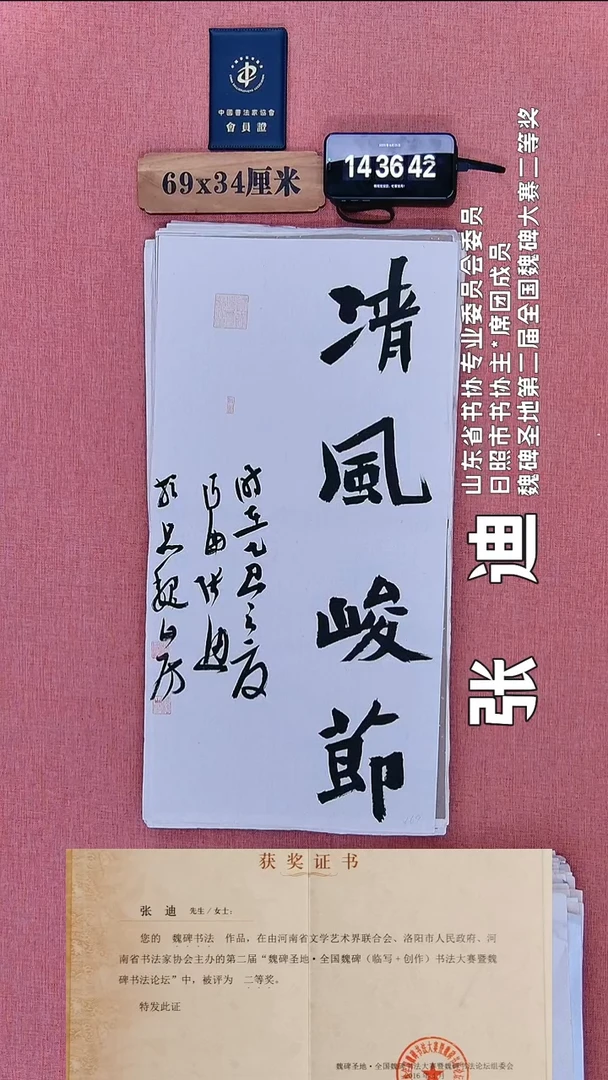 中國書法家協會
會員證
69x34厘米
14 36 42
清風峻節
時在乙巳之夏
張迪
山东省书协专业委员会委员
日照市书协主*席团成员
魏碑圣地第二届全国魏碑大赛二等奖
张 迪
获奖证书
张 迪 先生/女士:
您的 魏碑书法 作品,在由河南省文学艺术界联合会、洛阳市人民政府、河
南省书法家协会主办的第二届“魏碑圣地·全国魏碑(临写+创作)书法大赛暨魏
碑书法论坛”中,被评为 二等奖。
特发此证
魏碑圣地·全国魏碑书法大赛暨魏碑书法论坛组委会